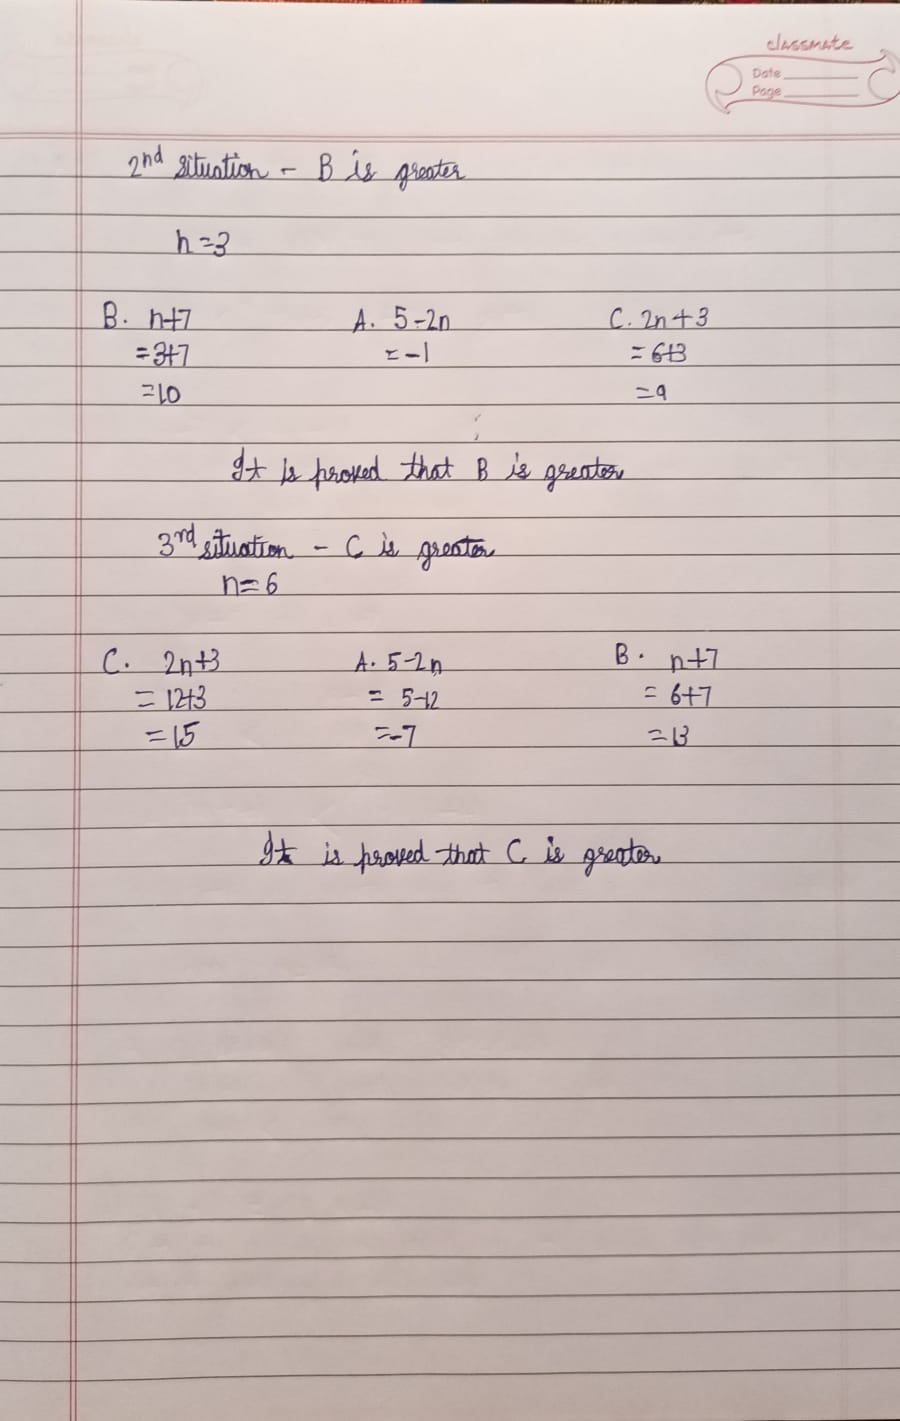 classmate
Date
Page
2nd situation - B is greater
n=3
B. n+7 A. 5-2n C. 2n+3
=3+7 =-1 =6+3
=10 =9
It is proved that B is greater
3rd situation - C is greater
n=6
C. 2n+3 A. 5-2n B. n+7
=12+3 = 5-12 = 6+7
=15 =-7 =13
It is proved that C is greater